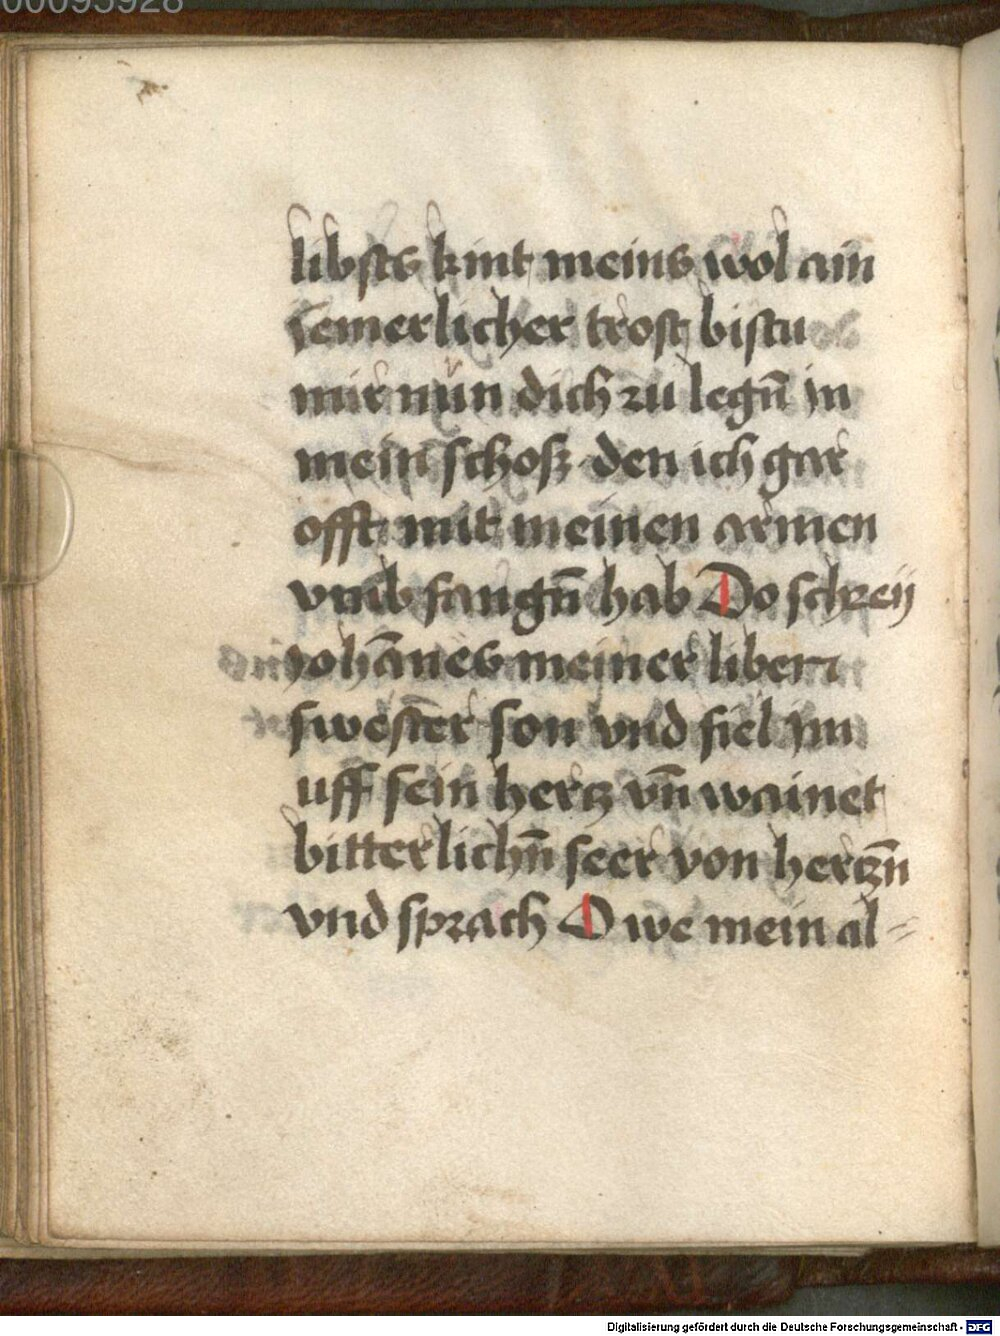 00093928
libsts kint meins wol ain
iemerlicher trost bistu
mir nün dich zu legn̄ in
mein schosz den ich gar
offt mit meinen armen
vmb fangn̄ hab Do schreij
iohānes meiner liben
swester son vnd fiel im
uff sein hertz vn̄ wainet
bitterlichn̄ seer von hertzn̄
vnd sprach O we mein al=
Digitalisierung gefördert durch die Deutsche Forschungsgemeinschaft - DFG